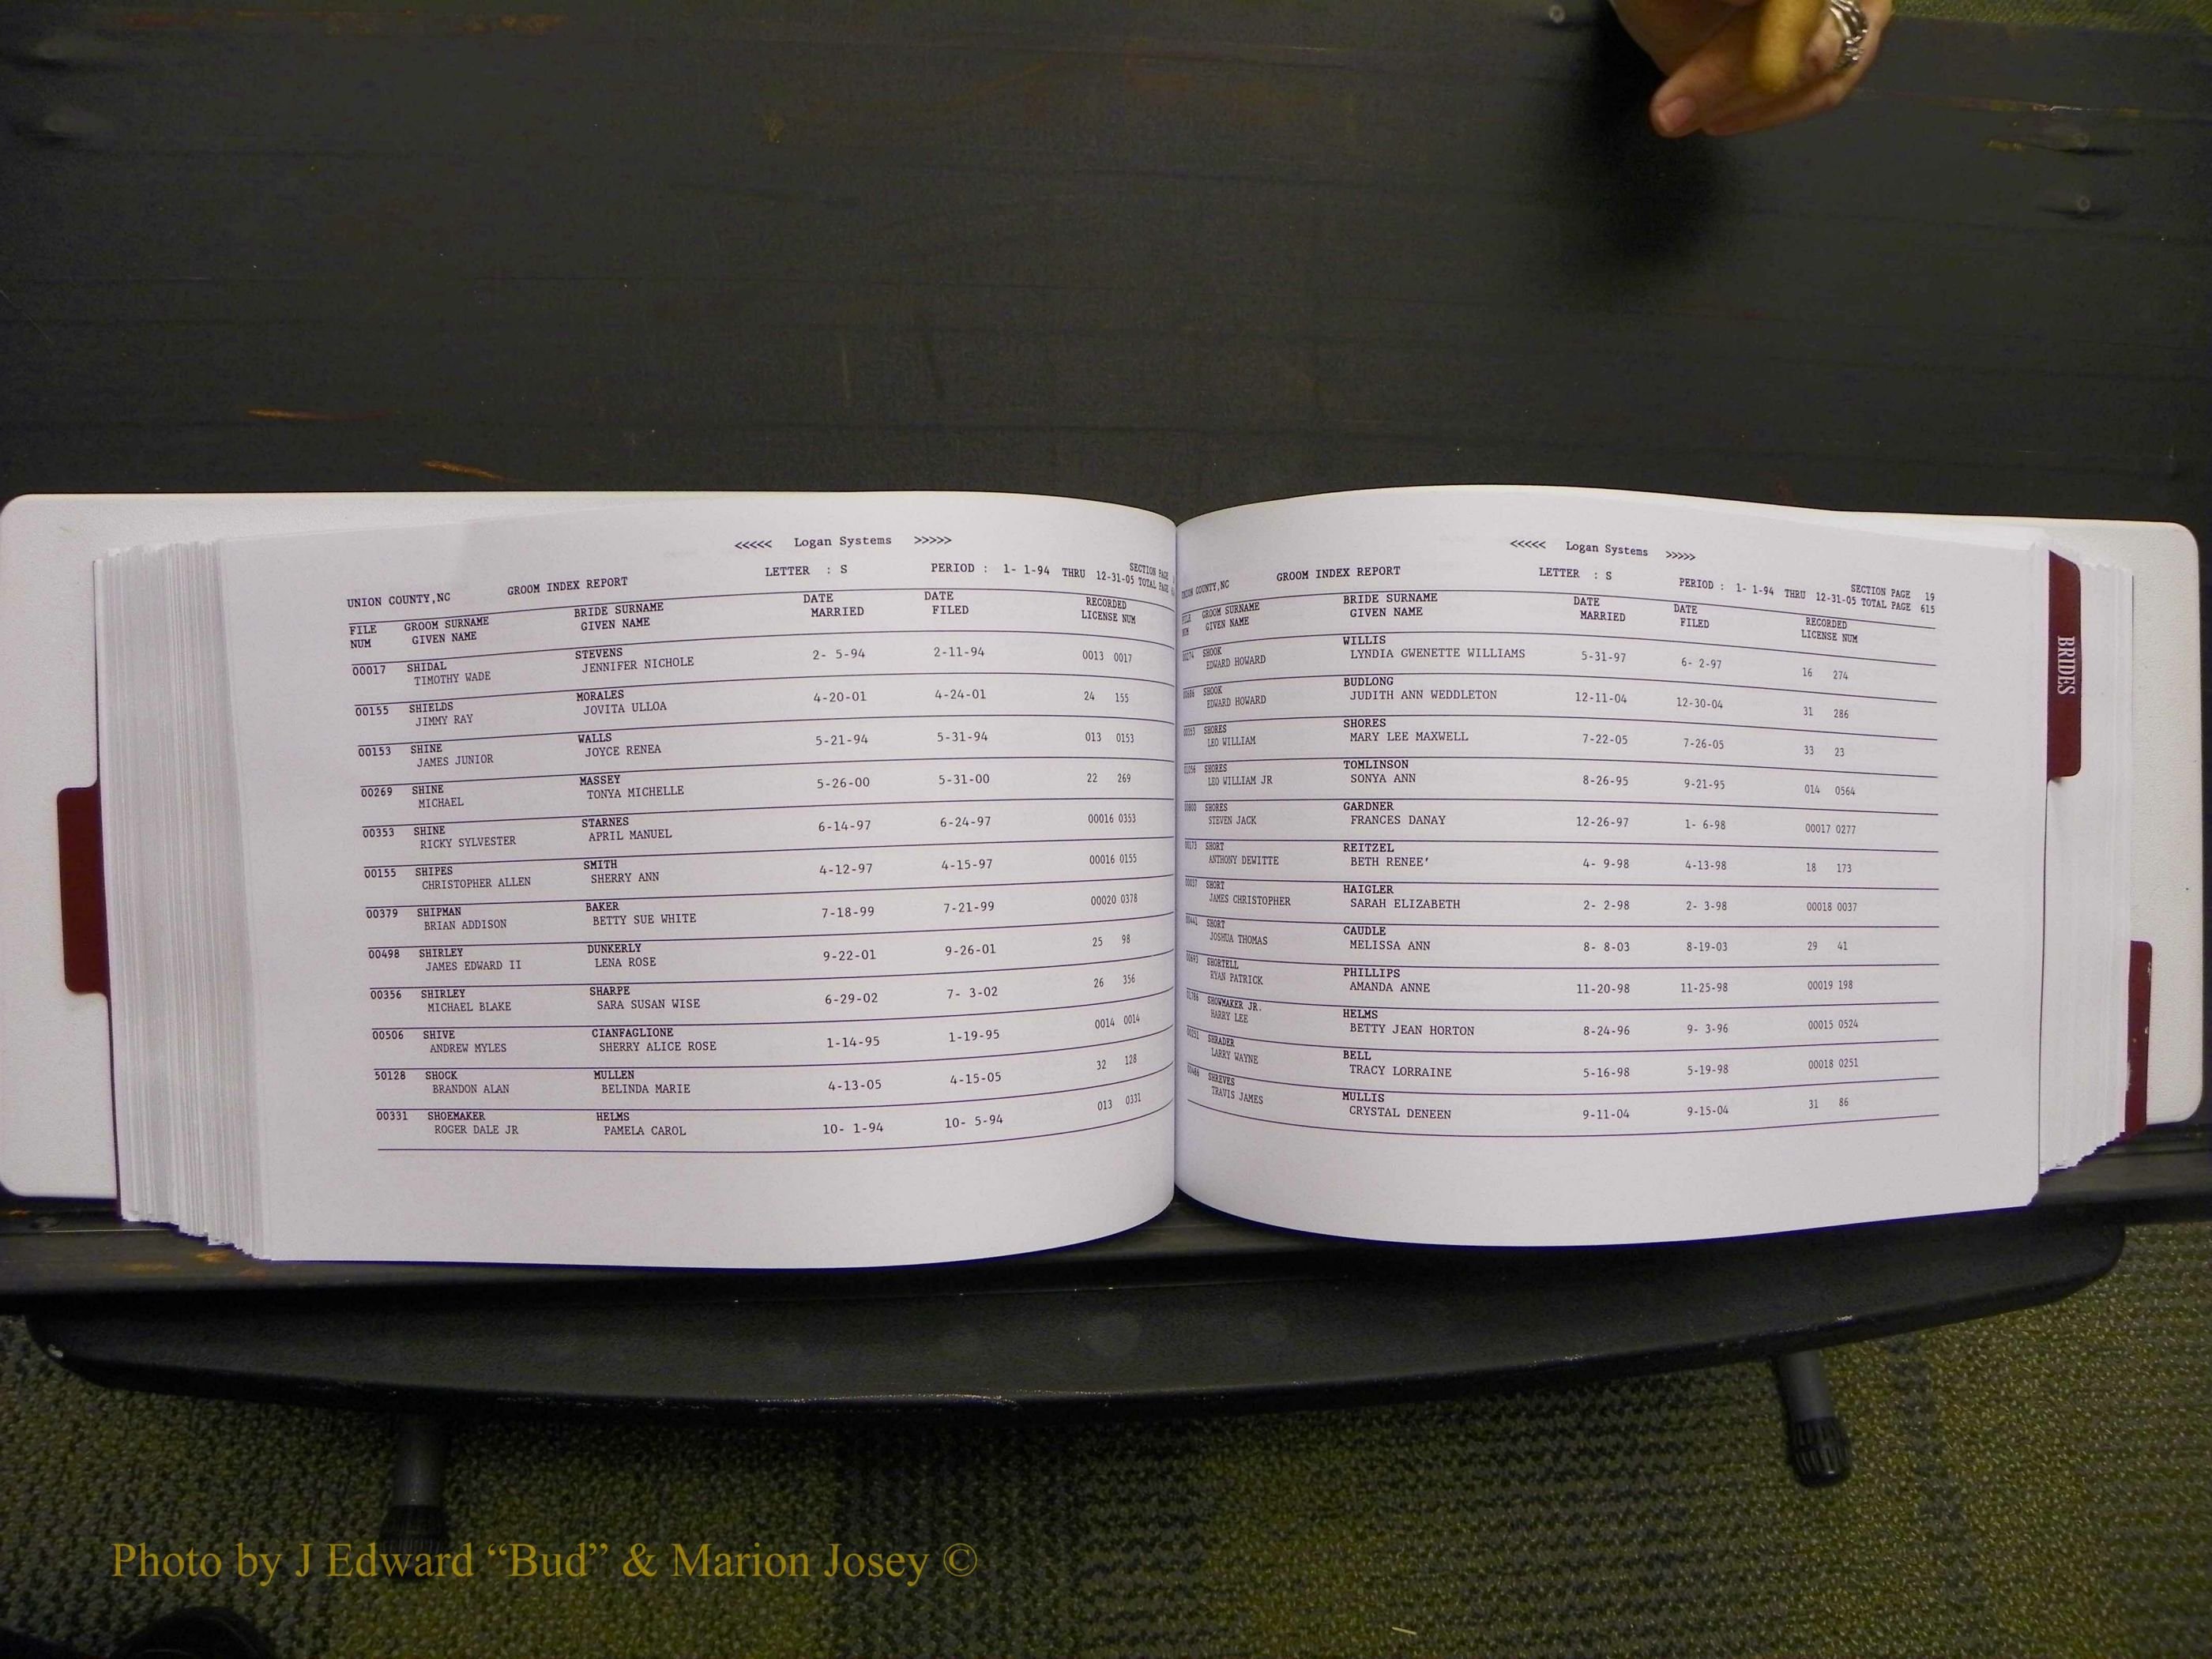 <<<<< Logan Systems >>>>>
UNION COUNTY,NC GROOM INDEX REPORT LETTER : S PERIOD : 1- 1-94 THRU 12-31-05 SECTION PAGE
TOTAL PAGE
FILE GROOM SURNAME BRIDE SURNAME DATE DATE RECORDED
NUM GIVEN NAME GIVEN NAME MARRIED FILED LICENSE NUM
00017 SHIDAL STEVENS 2- 5-94 2-11-94 0013 0017
TIMOTHY WADE JENNIFER NICHOLE
00155 SHIELDS MORALES 4-20-01 4-24-01 24 155
JIMMY RAY JOVITA ULLOA
00153 SHINE WALLS 5-21-94 5-31-94 013 0153
JAMES JUNIOR JOYCE RENEA
00269 SHINE MASSEY 5-26-00 5-31-00 22 269
MICHAEL TONYA MICHELLE
00353 SHINE STARNES 6-14-97 6-24-97 00016 0353
RICKY SYLVESTER APRIL MANUEL
00155 SHIPES SMITH 4-12-97 4-15-97 00016 0155
CHRISTOPHER ALLEN SHERRY ANN
00379 SHIPMAN BAKER 7-18-99 7-21-99 00020 0378
BRIAN ADDISON BETTY SUE WHITE
00498 SHIRLEY DUNKERLY 9-22-01 9-26-01 25 98
JAMES EDWARD II LENA ROSE
00356 SHIRLEY SHARPE 6-29-02 7- 3-02 26 356
MICHAEL BLAKE SARA SUSAN WISE
00506 SHIVE CIANFAGLIONE 1-14-95 1-19-95 0014 0014
ANDREW MYLES SHERRY ALICE ROSE
50128 SHOCK MULLEN 4-13-05 4-15-05 32 128
BRANDON ALAN BELINDA MARIE
00331 SHOEMAKER HELMS 10- 1-94 10- 5-94 013 0331
ROGER DALE JR PAMELA CAROL
<<<<< Logan Systems >>>>>
UNION COUNTY,NC GROOM INDEX REPORT LETTER : S PERIOD : 1- 1-94 THRU 12-31-05 SECTION PAGE 19
TOTAL PAGE 615
FILE GROOM SURNAME BRIDE SURNAME DATE DATE RECORDED
NUM GIVEN NAME GIVEN NAME MARRIED FILED LICENSE NUM
00274 SHOOK WILLIS 5-31-97 6- 2-97 16 274
EDWARD HOWARD LYNDIA GWENETTE WILLIAMS
SHOOK BUDLONG 12-11-04 12-30-04 31 286
EDWARD HOWARD JUDITH ANN WEDDLETON
SHORES SHORES 7-22-05 7-26-05 33 23
LEO WILLIAM MARY LEE MAXWELL
SHORES TOMLINSON 8-26-95 9-21-95 014 0564
LEO WILLIAM JR SONYA ANN
SHORES GARDNER 12-26-97 1- 6-98 00017 0277
STEVEN JACK FRANCES DANAY
00173 SHORT REITZEL 4- 9-98 4-13-98 18 173
ANTHONY DEWITTE BETH RENEE'
00037 SHORT HAIGLER 2- 2-98 2- 3-98 00018 0037
JAMES CHRISTOPHER SARAH ELIZABETH
SHORT CAUDLE 8- 8-03 8-19-03 29 41
JOSHUA THOMAS MELISSA ANN
SHORTELL PHILLIPS 11-20-98 11-25-98 00019 198
RYAN PATRICK AMANDA ANNE
SHOWMAKER JR. HELMS 8-24-96 9- 3-96 00015 0524
HARRY LEE BETTY JEAN HORTON
00251 SHRADER BELL 5-16-98 5-19-98 00018 0251
LARRY WAYNE TRACY LORRAINE
SHREVES MULLIS 9-11-04 9-15-04 31 86
TRAVIS JAMES CRYSTAL DENEEN
BRIDES
Photo by J Edward “Bud” & Marion Josey ©